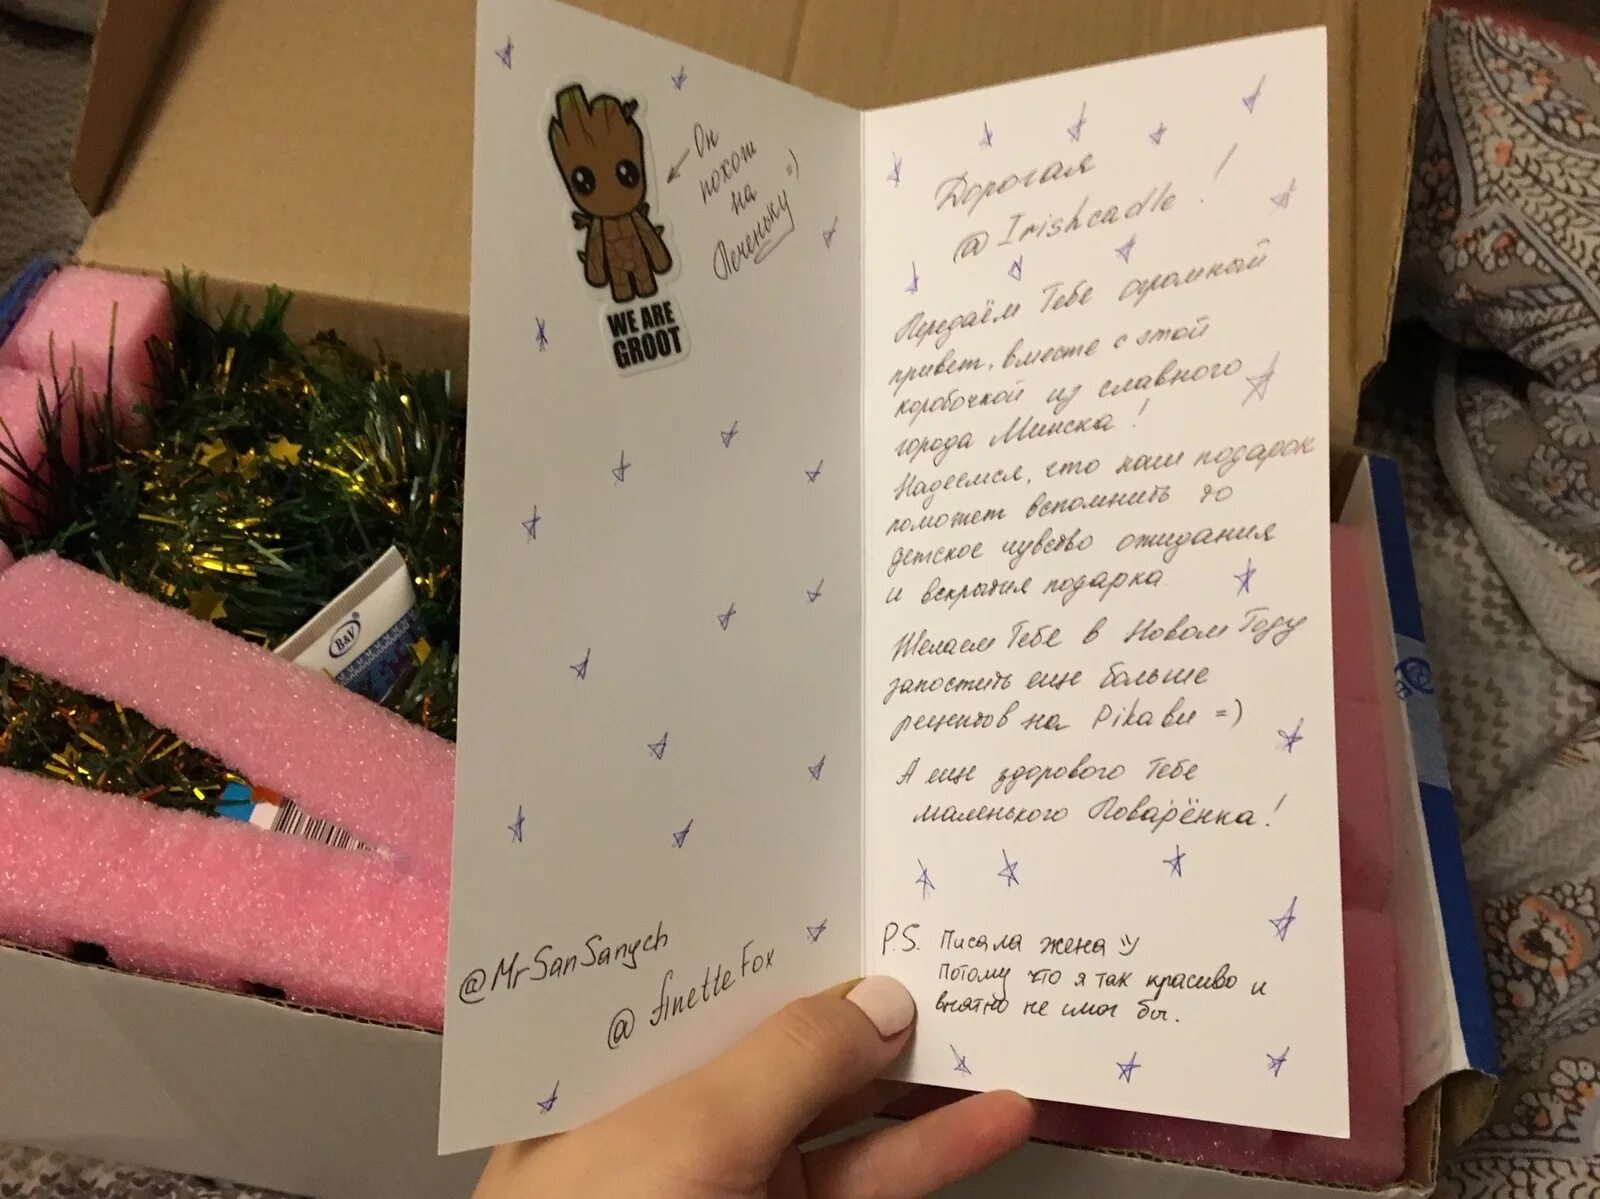 Он
похож
на
Печеньку =)
WE ARE
GROOT
@MrSanSanych
@finetteFox
Дорогая
@Irishcadle!
Передаём Тебе огромный
привет, вместе с этой
коробочкой из славного
города Минска!
Надеемся, что наш подарок
поможет вспомнить то
детское чувство ожидания
и вскрытия подарка
Желаем Тебе в Новом Году
запостить еще больше
рецептов на Pikabu =)
А еще здорового Тебе
маленького Поварёнка!
P.S. Писала жена =)
Потому что я так красиво и
внятно не смог бы.
B&V